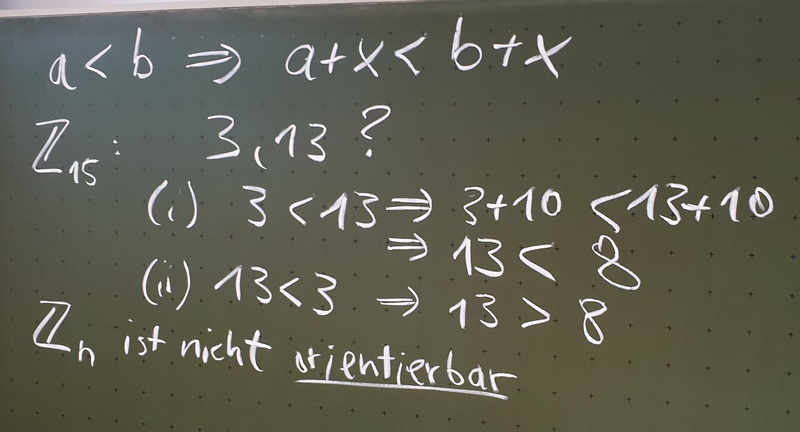 a < b ⇒ a+x < b+x
ℤ₁₅: 3, 13 ?
(i) 3 < 13 ⇒ 3+10 < 13+10
⇒ 13 < 8
(ii) 13 < 3 ⇒ 13 > 8
ℤₙ ist nicht orientierbar